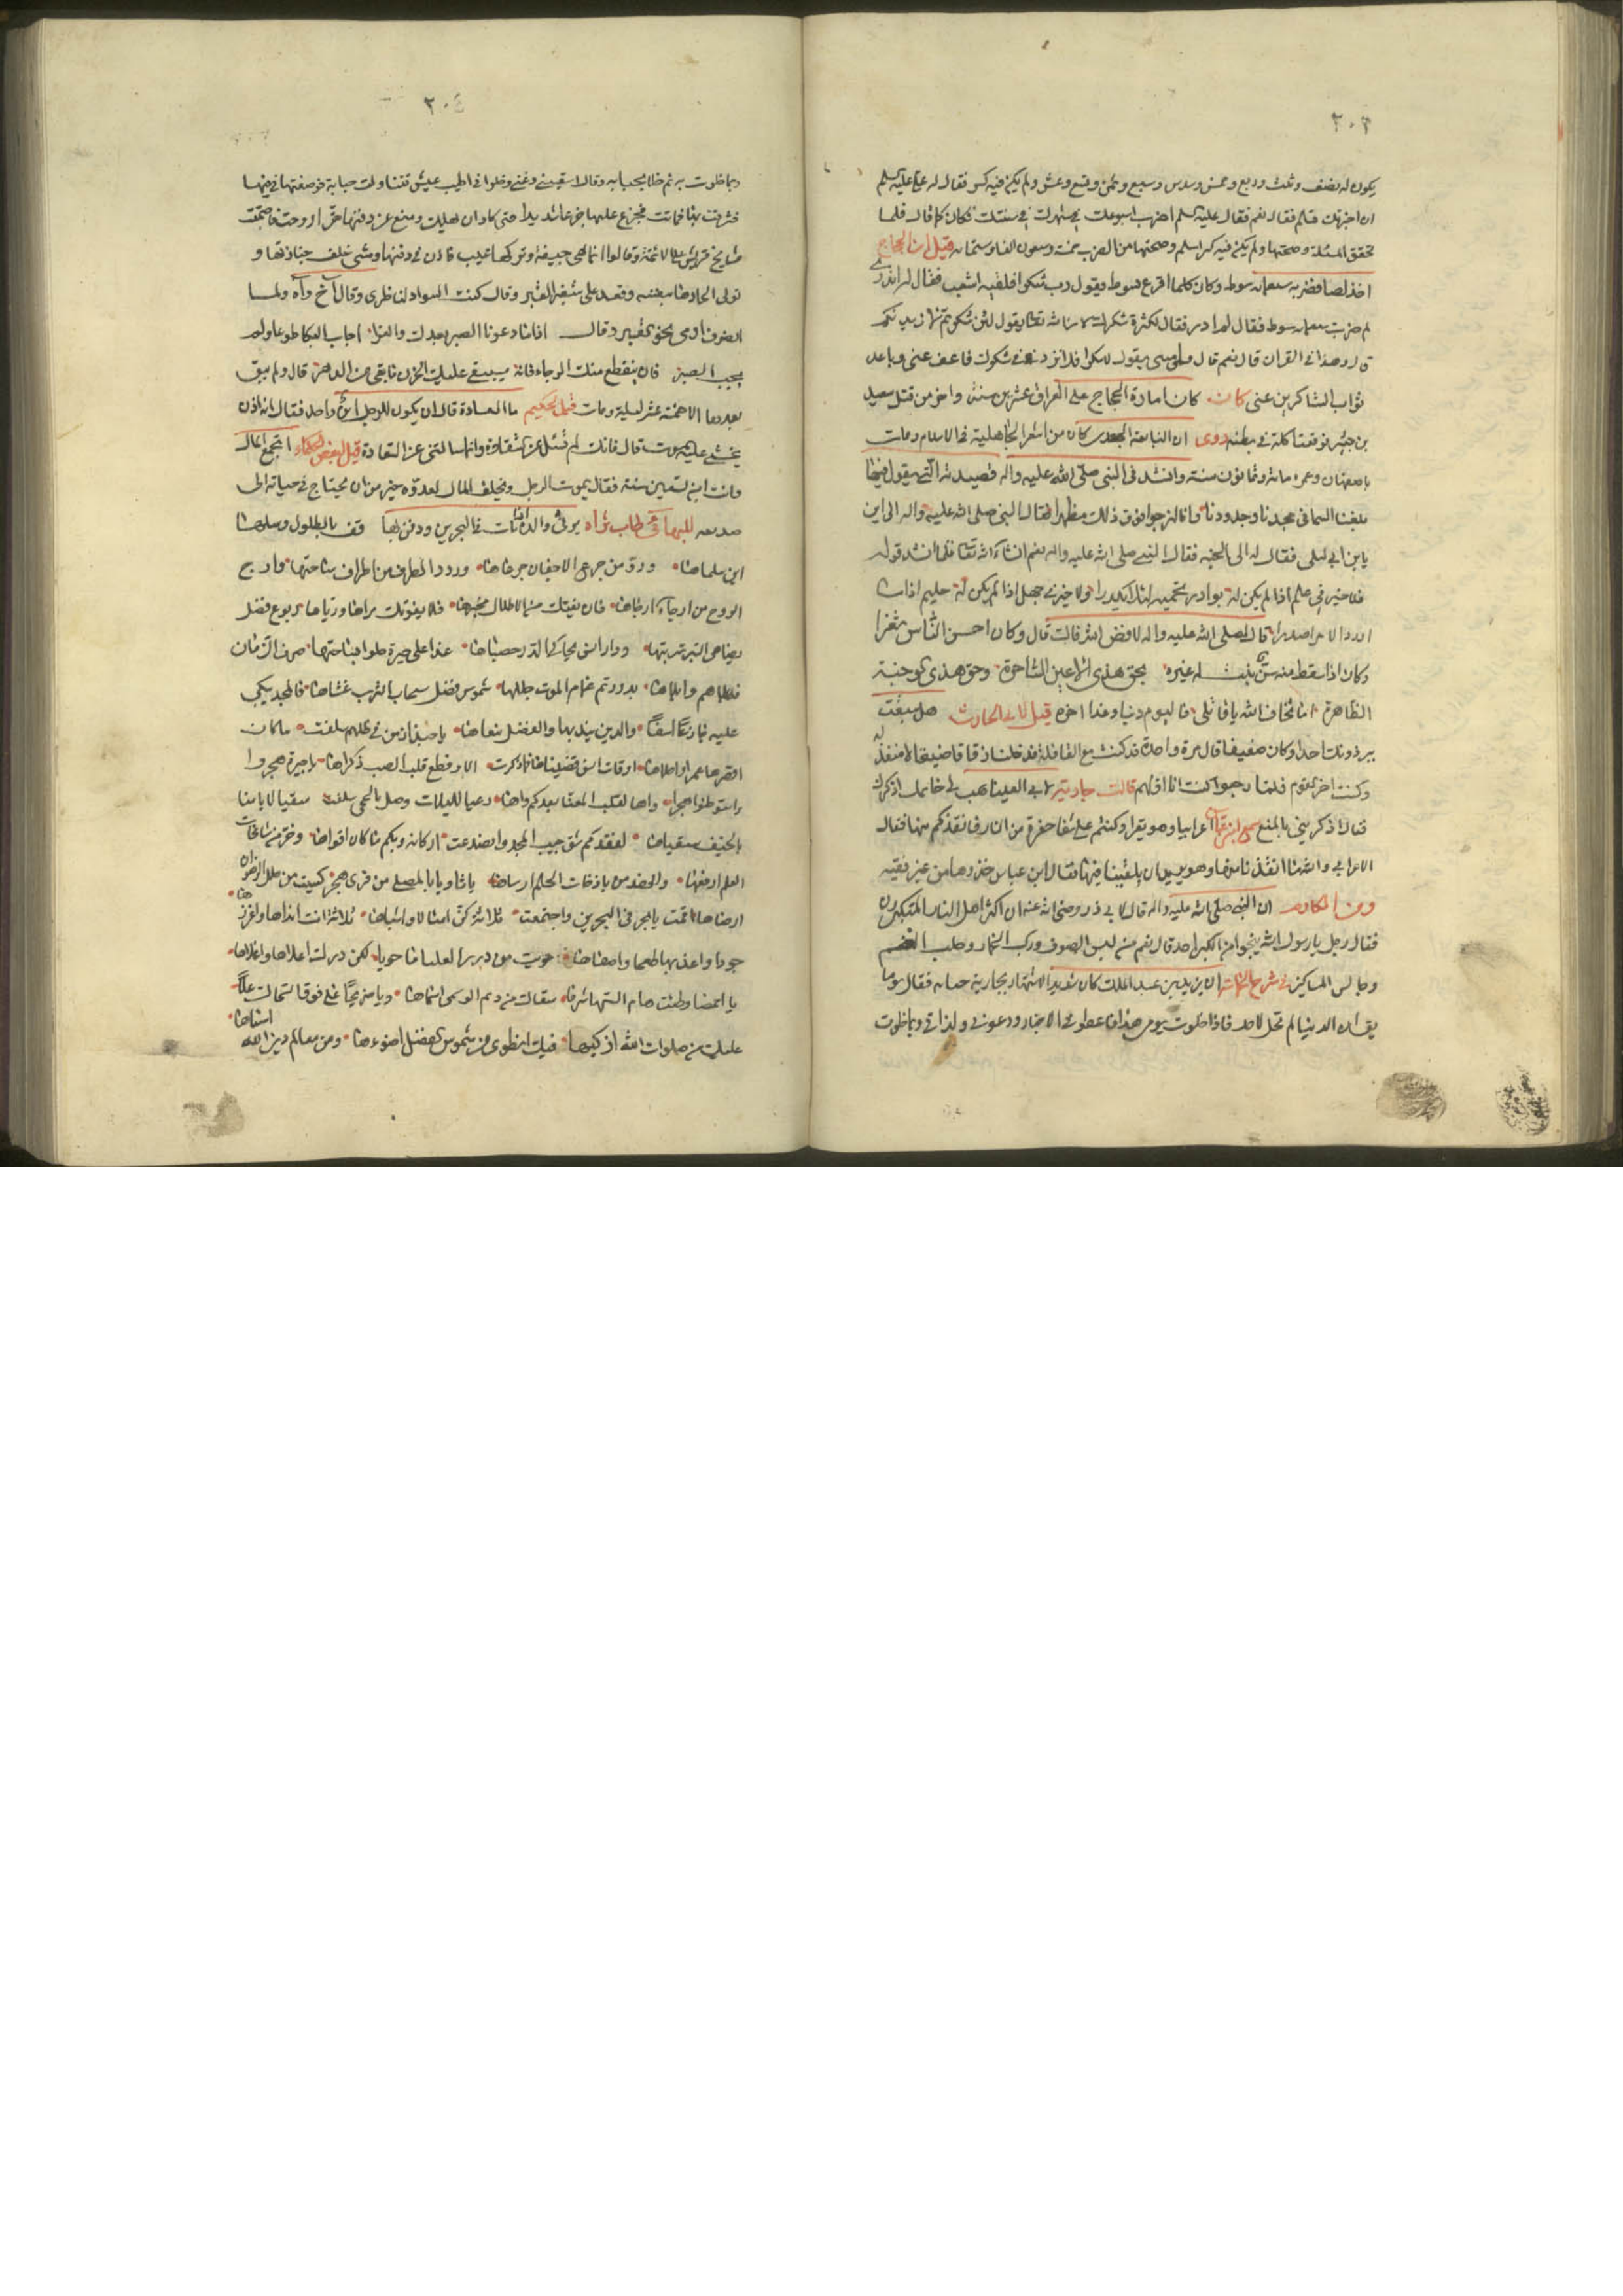 ٢٠٣
يكون له نصف وثلث وربع وخمس وسدس وسبع وثمن وتسع وعشر ولم يكن فيه كسر فقال له علي عليه السلم
ان اخبرتك تسلم فقال نعم فقال عليه السلم اضرب اسبوعك في شهرك في سنتك فكان كما قال فلما
تحقق المسئلة وصحتها ولم يكن فيه كسر اسلم وصحتها من الضرب خمسة وسبعون الفا وستمائه قيل ان الحجاج
اخذ لصا فضربه سبعمائه سوط وكان كلما اقرع بسوط يقول رب شكرا فلقيه اشعب فقال له اتدري
لم ضربت سبعمائه سوط فقال لما ادر فقال لكثرة شكرك لان الله تعالى يقول لئن شكرتم لازيدنكم
قال وهذا في القران قال نعم قال يقول لا شكرا فلا تزدني في شكرك فاعف عني وباعد
ثواب الشاكرين عني كان كان امارة الحجاج على العراق عشرين سنة واخر من قتل سعيد
بن جبير فوقعت اكلة في بطنه روى ان النابغة الجعدي كان من اشعر الجاهلية في الاسلام ومات
باصفهان وعمره مائة وثمانون سنة وانشد في النبي صلى الله عليه واله قصيدته التي يقول فيها
بلغنا السما في مجدنا وجدودنا وانا لنرجوا فوق ذلك مظهرا فقال النبي صلى الله عليه واله الى اين
يا بن ابي ليلى فقال له الى الجنه فقال النبي صلى الله عليه واله نعم انشاء الله تعالى فلما انشد قوله
فلا خير في علم اذا لم يكن له بوادر تحميه لئلا يكدرا ولا خير في جهل اذا لم يكن له حليم اذا ما
اورد الامر اصدرا قال صلى الله عليه واله لا فض الله فاك قال وكان احسن الناس ثغرا
وكان اذا سقط منه سن ينبت له غيره بحق هذي الاعين الساحرة وحق هذي الوجنة
الظاهرة اما تخاف الله يا قاتلي فاليوم دنيا وغدا اخره قيل لابي الحارث هل سبقت
ببرذونك احدا وكان ضعيفا قال مرة واحدة قد كنت مع القافلة فدخلت زقاقا ضيقا لا منفذ له
وكنت اخر القوم فلما رجعوا كنت انا اولهم قالت جارية لابي العيناء هب لي خاتمك اذكرك
فقال اذكريني بالمنع سمع ابن عباس اعرابيا وهو يقرا وكنتم على شفا حفرة من النار فانقذكم منها فقال
الاعرابي والله ما انقذنا منها وهو يريد ان يلقينا فيها فقال ابن عباس خذوها من غير فقيه
ومن المكارم ان النبي صلى الله عليه واله قال لابي ذر رضي الله عنه ان اكثر اهل النار المتكبرون
فقال رجل يا رسول الله اينجوا من الكبر احد قال نعم من لبس الصوف وركب الحمار وحلب الغنم
وجالس المساكين في شرح النهاية ان يزيد بن عبد الملك كان شديد الاشتهار بجارية حبابه فقال يوما
يقال ان الدنيا لم تحل لاحد فاذا خلوت يومي هذا فاعطوني الاخبار ودعوني ولذاتي وبما خلوت
٢٠٤
وبما خلوت به ثم خلا بحبابه وقال اسقيني وغنيني وخلوا في اطيب عيش فتناولت حبابة فوضعتها في فيها
فشرقت بها فماتت فجزع عليها جزعا شديدا حتى كاد ان يهلك ومنع من دفنها حتى اروحت فاجتمعت
مشايخ قريش وقالوا انما هي جيفة وتركها عيب فاذن في دفنها ومشى خلف جنازتها و
تولى الحادها بنفسه وقعد على شفير القبر وقال كنت السواد لناظري وقال آخ وآه ولما
انصرف القبر وقال اذا ما دعونا الصبر بعدك والعزا اجاب البكا طوعا ولم
يجب الصبر فان ينقطع منك الرجاء فانه سيبقى عليك الحزن ما بقي الدهر قال ولم يبق
بعدها الا خمسة عشر ليلة ومات قيل لحكيم ما السعادة قال ان يكون للرجل ابن واحد فقال انه اذن
يخشى عليه الموت قال فانك لم تسئل عن الشقاوة وانما سالتني عن السعادة قيل لبعض الحكماء اتجمع المال
وانت ابن تسعين سنة فقال يموت الرجل ويخلف المال لعدوه خير من ان يحتاج في حياته الى
صديقه للبهائي طاب ثراه يرثى والده مات في البحرين ودفن بها قف بالطلول وسلها
اين سلماها وروّ من جرع الاجفان جرعاها وردد الطرف في اطراف ساحتها وارج
الروح من ارواح ارجاها فان يفتك من الاطلال مخبرها فلا يفوتك مراها ورياها ربوع فضل
يضاهي التبر تربتها ودار انس يحاكي الدر حصباها عدا على جيرة حلوا بساحتها صرف الزمان
فابلاهم وابلاها بدور تم غمام الموت جللها شموس فضل سحاب الترب غشاها فالمجد يبكي
عليه جازعا اسفا والدين يندبها والفضل ينعاها يا حبذا ازمن في ظلهم سلفت ما كان
اقصرها عمرا واحلاها اوقات انس قضيناها فما ذكرت الا وقطع قلب الصب ذكراها يا جيرة هجروا
واستوطنوا هجرا واها لقلب المعنى بعدكم واها رعيا لليلات وصل بالحمى سلفت سقيا لايامنا
بالخيف سقياها لفقدكم شق جيب المجد وانصدعت اركانه وبكم ما كان اقواها وخر من شامخات
العلم ارفعها وانهد من باذخات الحلم ارساها يا ثاويا بالمصلى من قرى هجر كسيت من حلل الرضوان
ارضاها اقمت يا بحر في البحرين واجتمعت ثلاثة كن امثالا واشباها ثلاثة انت انداها واغزرها
جودا واعذبها طعما واصفاها حويت من درر العليا ما حويا لكن درك اعلاها واغلاها
يا اخمصا وطئت هام السهى شرفا سقاك من ديم الوسمي اسماها ويا ضريحا علا فوق السماك علا
عليك من صلوات الله ازكيها فيك انطوى من شموس الفضل اضوءها ومن معالم دين الله
اسناها